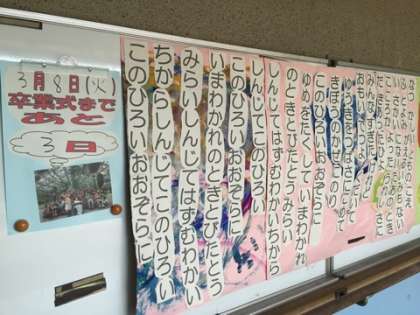 3月8日(火)
卒業式まで
あと
3日
ゆうきをつばさにこめて
きぼうのかぜにのり
このひろいおおぞらに
ゆめをたくしていまわかれ
のときとびたとうみらい
しんじてはずむわかいちから
しんじてこのひろい
このひろいおおぞらに
いまわかれのときとびたとう
みらいしんじてはずむわかい
ちからしんじてこのひろい
このひろいおおぞらに